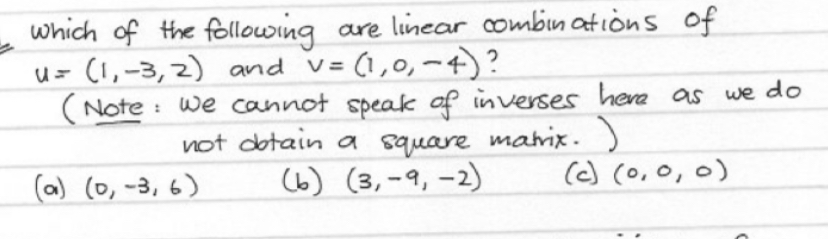 which of the following are linear combinations of
u = (1, -3, 2) and v = (1, 0, -4)?
(Note : We cannot speak of inverses here as we do
not obtain a square matrix. )
(a) (0, -3, 6) (b) (3, -9, -2) (c) (0, 0, 0)